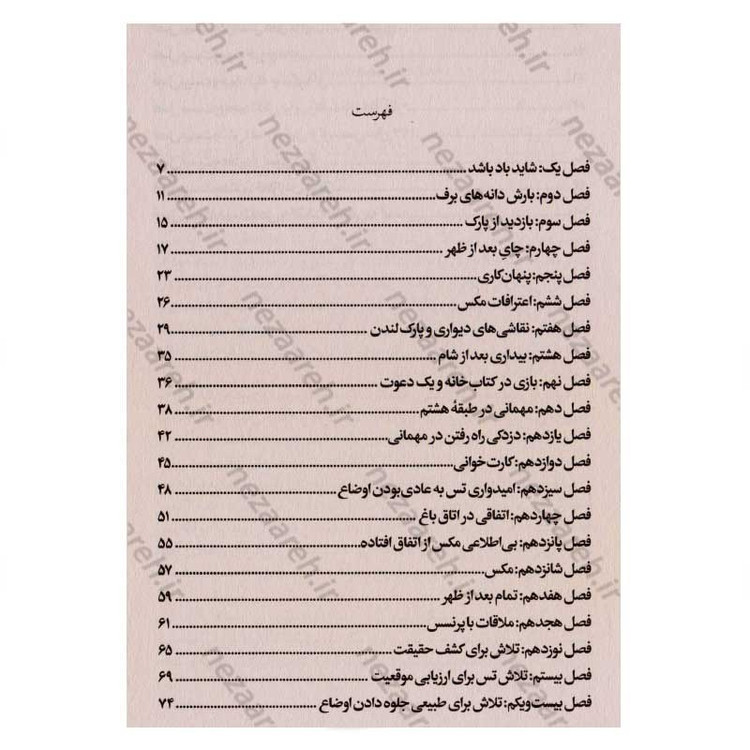 فهرست
فصل یک: شاید باد باشد ........ ۷
فصل دوم: بارش دانه‌های برف ........ ۱۱
فصل سوم: بازدید از پارک ........ ۱۵
فصل چهارم: چایِ بعد از ظهر ........ ۱۷
فصل پنجم: پنهان‌کاری ........ ۲۳
فصل ششم: اعترافات مکس ........ ۲۶
فصل هفتم: نقاشی‌های دیواری و پارک لندن ........ ۲۹
فصل هشتم: بیداری بعد از شام ........ ۳۵
فصل نهم: بازی در کتاب‌خانه و یک دعوت ........ ۳۶
فصل دهم: مهمانی در طبقهٔ هشتم ........ ۳۸
فصل یازدهم: دزدکی راه رفتن در مهمانی ........ ۴۲
فصل دوازدهم: کارت‌خوانی ........ ۴۵
فصل سیزدهم: امیدواری تس به عادی‌بودن اوضاع ........ ۴۸
فصل چهاردهم: اتفاقی در اتاق باغ ........ ۵۱
فصل پانزدهم: بی‌اطلاعی مکس از اتفاق افتاده ........ ۵۵
فصل شانزدهم: مکس ........ ۵۷
فصل هفدهم: تمام بعد از ظهر ........ ۵۹
فصل هجدهم: ملاقات با پرنسس ........ ۶۱
فصل نوزدهم: تلاش برای کشف حقیقت ........ ۶۵
فصل بیستم: تلاش تس برای ارزیابی موقعیت ........ ۶۹
فصل بیست‌ویکم: تلاش برای طبیعی جلوه دادن اوضاع ........ ۷۴
nezaareh.ir